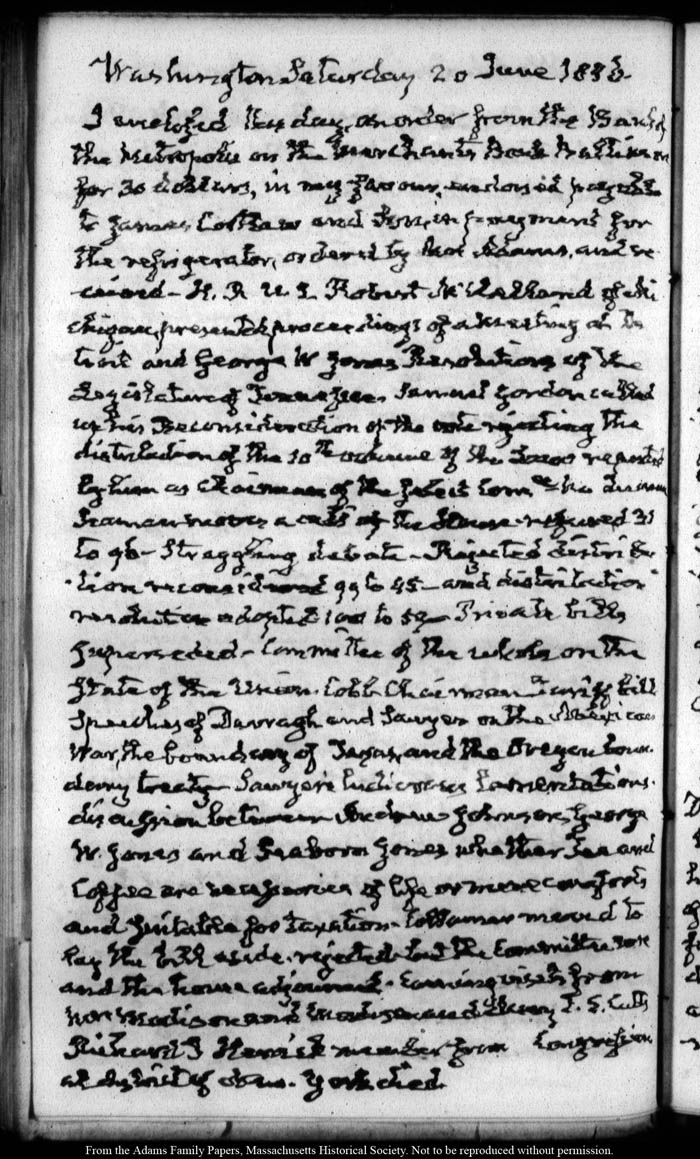 Washington Saturday 20 June 1846.
I enclosed this day, an order from the Bank of
the Metropolis on the Merchants Bank Baltimore
for 30 dollars, in my favour, endorsed payable
to James and Son, in payment for
the refrigerator, ordered by Mrs Adams, and re
ceived - H. R. U. S. Robert McClelland of Mi
chigan presented proceedings of a Meeting at De
troit and George W Jones Resolutions of the
Legislature of Tennessee. Samuel Gordon called
up his Reconsideration of the vote rejecting the
distribution of the 10th volume of the reported
by him as Chairman of the Select Comee
Seaman moved a call of the House. refused 31
to 96 - Straggling debate - Rejected distribu
tion reconsidered 99 to 45 - and distribution
resolution adopted 100 to 59 - Private bills
superseded - Committee of the whole on the
State of the Union. Cobb Chairman Tariff bill
Speeches of Darragh and Sawyer on the Mexican
War, the boundary of Texas, and the Oregon boun
dary treaty - Sawyer's ludicrous Lamentations.
discussion between Andrew Johnson, George
W. Jones and Seaborn Jones whether Tea and
Coffee are necessaries of life or mere comforts
and suitable for taxation. Collamer moved to
lay the bill aside. rejected but the Committee rose
and the house adjourned. Evening visits from
Mrs Madison and I. E. Cutts
Richard P Herrick member from Congression
al district of New-York died.
From the Adams Family Papers, Massachusetts Historical Society. Not to be reproduced without permission.